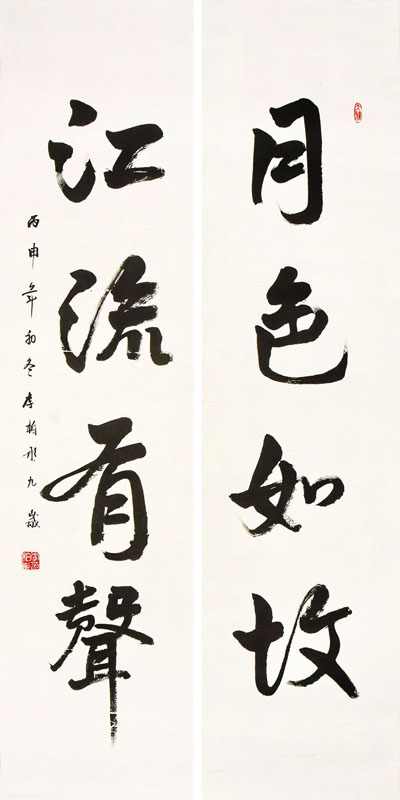 月色如故
江流有聲
丙申年初冬李柏九歲